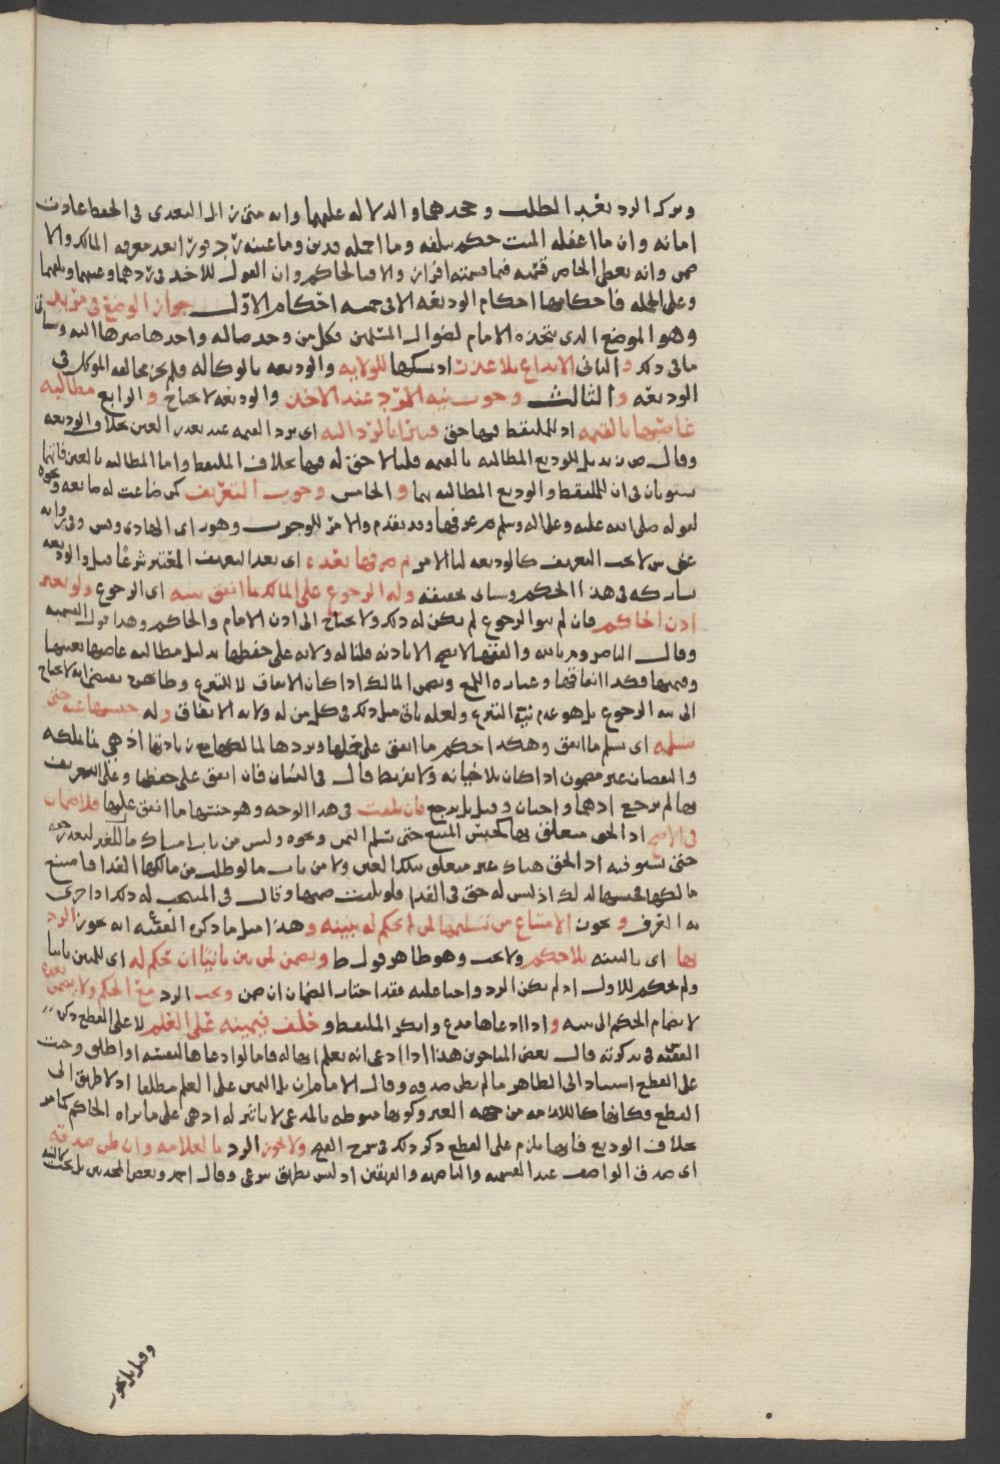 وترك الرد بعد الطلب و جحدها والدلاله عليها وانه متى زال التعدى فى الحفظ عادت
امانه وان ما اغفله الميت حكم بتلفه وما اجمله فدين وما عينه رد فورا بعد معرفه المالك والا
ضمن وانه يعطى الحاضر قسمه فيما قسمته افراز والا فبالحاكم وان القول للاخذ فى ردها وعينها وتلفها
وعلى الجمله فاحكامها احكام الوديعه الا فى خمسه احكام الاول جواز الوضع فى مربد
وهو الموضع الذى يتخذه الامام لضوال المسلمين فكل من وجد ضاله واحد هاصرها اليه وسيا
ما فى ذلك و الثانى الايداع بلا عذر اذ مسكها للولايه والوديعه بالوكاله فلم يجز مخالفه الموكل فى
الوديعه و الثالث وجوب نيه الرد عند الاخذ والوديعه لا تحتاج و الرابع مطالبه
غاصبها بالقيمه اذ للملتقط فيها حق فيبرا بالرد اليه اى برد القيمه عند تعذر العين بخلاف الوديعه
وقال ض زيد بل للوديع المطالبه بالقيمه قلنا لا حق له فيها بخلاف الملتقط واما المطالبه بالعين فانهما
يستويان فى ان للملتقط والوديع المطالبه بها و الخامس وجوب التعريف كمن ضاعت له ضايعه ونحوه
لقوله صلى الله عليه وعلى اله وسلم من عرفها وقد تقدم والامر للوجوب وهو راى الهادى وش وفى روايه
عن ش لا يجب التعريف كالوديعه لنا الامر ثم صرفها بعده اى بعد التعريف المعتبر شرعا قبل والوديعه
تشاركه فى هذا الحكم وسياتى تحقيقه وله الرجوع على المالك بما انفق بنيه اى الرجوع ولو بغير
اذن الحاكم فان لم ينو الرجوع لم يكن له ذلك ولا يحتاج الى اذن الامام والحاكم وهذا قول القسميه
وقال الناصر وم بالله والفقها لا يصح الا باذنه قلنا له ولايه على حفظها بدليل مطالبه غاصبها بعينها
وقيمتها فكذا انفاقها وعباره اللمع ويضمن المالك اذا كان الانفاق لا للتبرع وظاهره يقتضى انه لا يحتاج
الى نيه الرجوع بل هو عدم نيه التبرع ولعله ياتى مثل ذلك فى كل من له ولايه الانفاق و له حبسها عنه حتى
يسلمه اى يسلم ما انفق وهكذا حكم ما انفق على حملها ويردها لمالكها مع زيادتها اذ هى نما ملكه
والنقصان غير مضمون اذا كان بلا خيانه ولا تفريط قال فى البستان فان انفق على حفظها وعلى التعريف
بها لم يرجع اذ هما واجبان وقيل بل يرجع فان تلفت فى هذا الوجه وهو حبسها بما انفق عليها فلا ضمان
فى الاصح اذ الحق متعلق بها كحبس المبيع حتى تسلم الثمن ونحوه وليس من باب امساك مال الغير لتعذر حقه
حتى تستوفيه اذ الحق هناك غير متعلق بتلك العين ولا من باب ما لو طلب من مالكها الفدا فامتنع
مالكها فحبسها لذلك اذ ليس له حق فى الفدا فلو تلفت ضمنها وقال فى المنتخب له ذلك اذا جرى
به العرف و يجوز الامتناع من تسليمها لمن لم يحكم له ببينه وهذا مثل ما ذكره الفقيه ع انه يجوز الرد
بها اى بالبينه بلا حكم ولا يجب وهو ظاهر قول ط و يضمن لمن بين ثانيا ان حكم له اى للمبين ثانيا
ولم يحكم للاول اذ لم يكن الرد واجبا عليه فقد اختار الضمان ان ضمن ويجب الرد مع الحكم ولا يضمن بعده
لانضمام الحكم الى بينه و اذا ادعاها مدع وانكر الملتقط و حلف فيمينه على العلم لا على القطع ذكره
الفقيه ف فى تذكرته قال بعض المتاخرين هذا اذا ادعى انه يعلم انها له فاما لو ادعاها لنفسه او اطلق وجبت
على القطع استنادا الى الظاهر ما لم يظن صدقه وقال الامامان بل اليمين على العلم مطلقا اذ لا طريق الى
القطع فكانها كاللازمه من جهه الغير وكونها منوطه بالمدعى لا تاثير له اذ هى على ما يراه الحاكم كما مر
بخلاف الوديع فانها تلزم على القطع ذكر ذلك فى شرح الفتح ولا يجوز الرد بالعلامه وان ظن صدقه
اى صدق الواصف عند القسميه والناصريه والفريقين اذ ليس بطريق شرعى وقال احمد وبعض المحدثين بل يجب كالبينه
وقيل بل يجوز